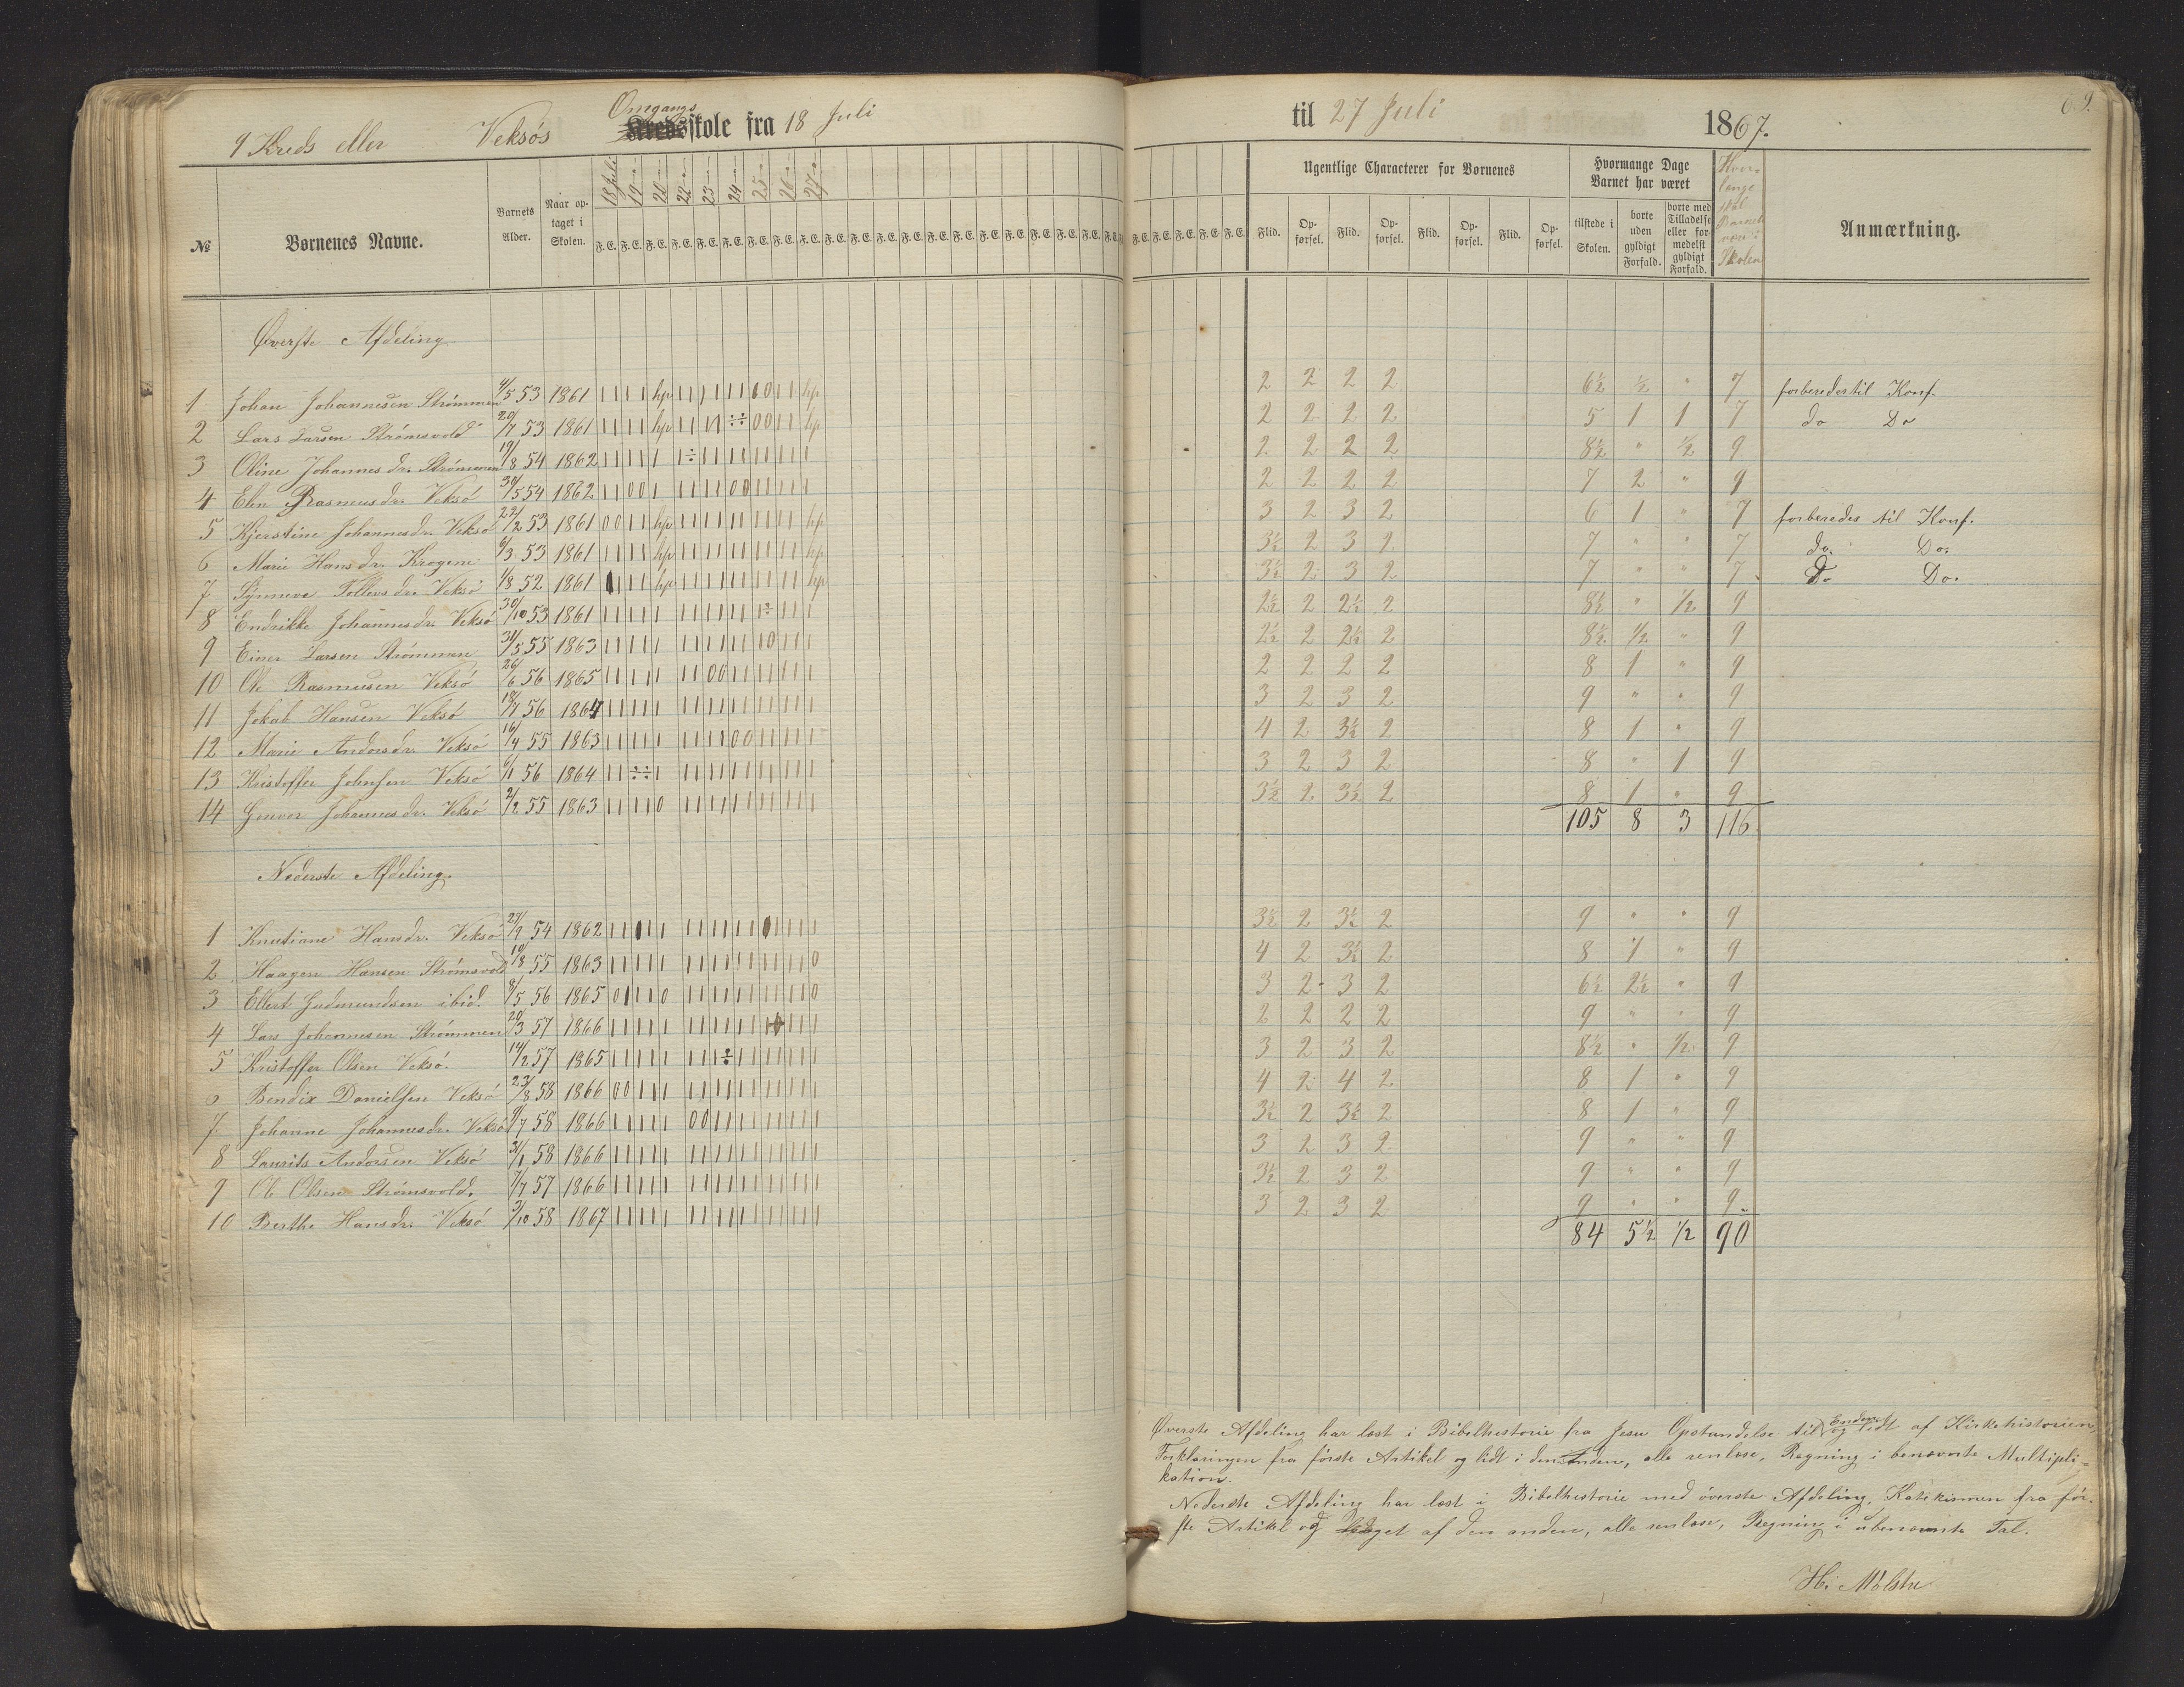 9 Kreds eller Veksøs Omgangs Kredsskole fra 18 Juli til 27 Juli 1867.
69.
№ Børnenes Navne. Barnets Alder. Naar optaget i Skolen. 18 Juli 19 20 22 23 24 25 26 27
F. E. F. E. F. E. F. E. F. E. F. E. F. E. F. E. F. E. F. E. F. E. F. E. F. E. F. E. F. E. F. E. F. E. F. E. F. E. F. E.
Ugentlige Characterer for Børnenes
Flid. Opførsel. Flid. Opførsel. Flid. Opførsel. Flid. Opførsel.
Hvormange Dage Barnet har været
tilstede i Skolen. borte uden gyldigt Forfald. borte med Tilladelse eller formedelst gyldigt Forfald.
Hvor længe skal Barnet være i Skolen
Anmærkning.
Øverste Afdeling
1 Johan Johannesen Strømmen 4/5 53 1861 2 2 2 2 6½ ½ " 7 forberedes til Konf.
2 Lars Larsen Strømsvold 20/7 53 1861 2 2 2 2 5 1 1 7 do Do
3 Oline Johannesdr. Strømmen 19/8 54 1862 2 2 2 2 8½ " ½ 9
4 Elen Rasmusdr. Veksø 30/5 54 1862 2 2 2 2 7 2 " 9
5 Kjerstine Johannesdr. Veksø 22/2 53 1861 3 2 3 2 6 1 " 7 forberedes til Konf.
6 Marie Hansdr. Krogene 6/3 53 1861 3½ 2 3 2 7 " " 7 do. Do.
7 Synneva Tollevsdr. Veksø 1/8 52 1861 3½ 2 3 2 7 " " 7 Do Do.
8 Endrikke Johannesdr. Veksø 30/10 53 1861 2½ 2 2½ 2 8½ " ½ 9
9 Einer Larsen Strømmen 31/5 55 1863 2½ 2 2½ 2 8½ ½ " 9
10 Ole Rasmusen Veksø 26/6 56 1865 2 2 2 2 8 1 " 9
11 Jokab Hansen Veksø 18/7 56 1864 3 2 3 2 9 " " 9
12 Marie Andersdr. Veksø 16/4 55 1863 4 2 3½ 2 8 1 " 9
13 Kristoffer Johnsen Veksø 6/1 56 1864 3 2 3 2 8 " 1 9
14 Gunvor Johannesdr. Veksø 2/2 55 1863 3½ 2 3½ 2 8 1 " 9
105 8 3 116
Nederste Afdeling.
1 Knutiane Hansdr. Veksø 27/9 54 1862 3½ 2 3½ 2 9 " " 9
2 Haagen Hansen Strømsvold 19/8 55 1863 4 2 3½ 2 8 1 " 9
3 Ellert Gudmundsen ibid. 8/5 56 1865 3 2 3 2 6½ 2½ " 9
4 Lars Johannesen Strømmen 20/3 57 1866 2 2 2 2 9 " " 9
5 Kristoffer Olsen Veksø. 14/2 57 1865 3 2 3 2 8½ " ½ 9
6 Bendix Danielsen Veksø 23/8 58 1866 4 2 4 2 8 1 " 9
7 Johanne Johannesdr. Veksø 9/7 58 1866 3½ 2 3½ 2 8 1 " 9
8 Laurits Andersen Veksø 31/1 58 1866 3 2 3 2 9 " " 9
9 Ole Olsen Strømsvold. 7/7 57 1866 3½ 2 3 2 9 " " 9
10 Berthe Hansdr. Veksø 3/10 58 1867 3 2 3 2 9 " " 9
84 5½ ½ 90
Øverste Afdeling har læst i Bibelhestorie fra Jesu Opstandelse til Enden og lidt af Kirkehistorien,
Forklaringen fra første Artikel og lidt i den anden, alle renlæse, Regning i benævnte Multipli-
kation.
Nederste Afdeling har læst i Bibelhestorie med øverste Afdeling, Katekismen fra før-
ste Artikel og Noget af den anden, alle renlæse, Regning i ubenævnte Tal.
H. Mølstre